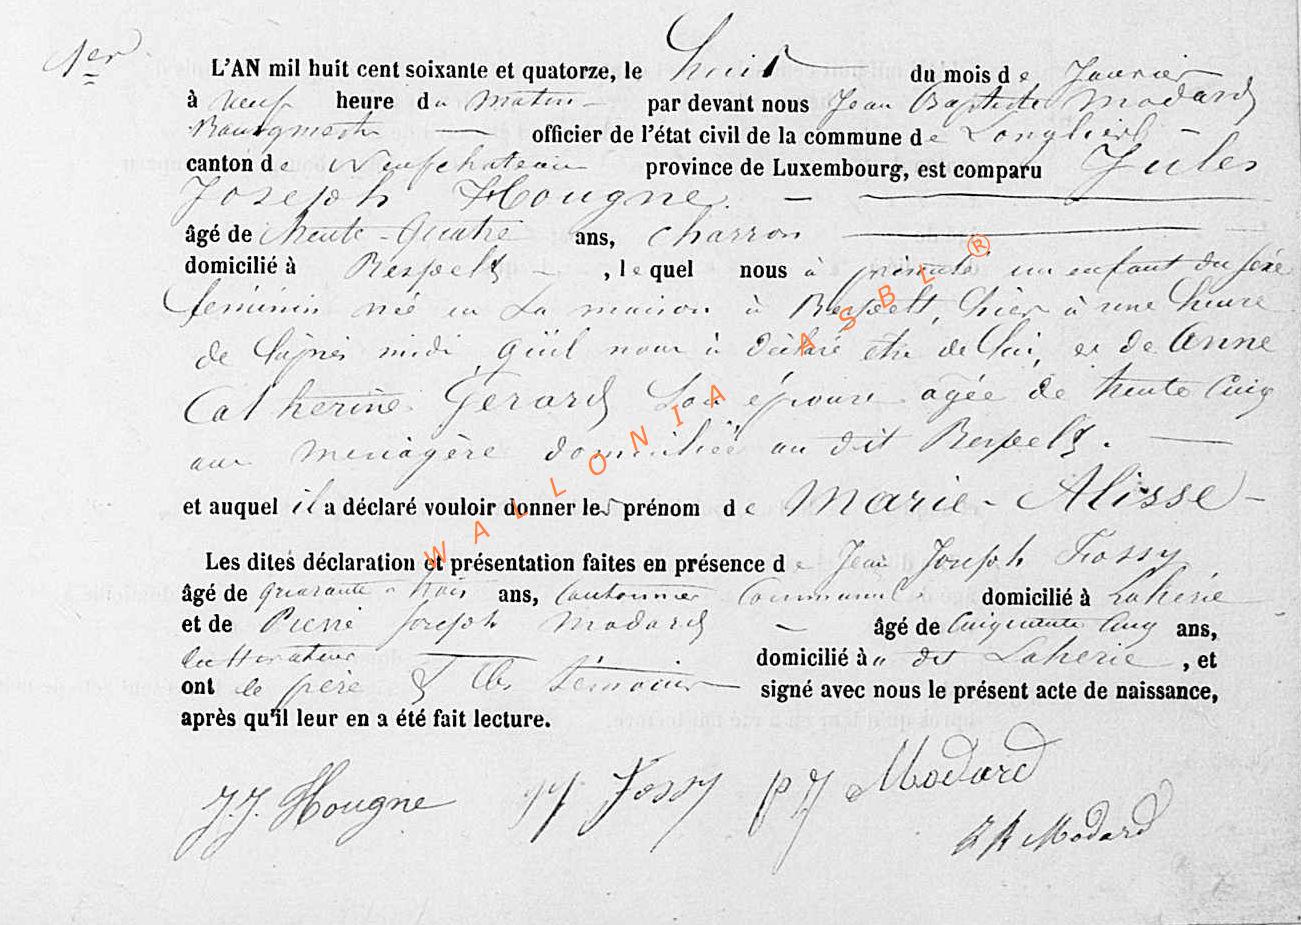 1er
L'AN mil huit cent soixante et quatorze, le huit du mois de Janvier
à neuf heure du matin par devant nous Jean Baptiste Modard
Bourgmestre officier de l'état civil de la commune de Longlier
canton de Neufchateau province de Luxembourg, est comparu Jules
Joseph Hougne.
âgé de trente-quatre ans, charron
domicilié à Respelt, lequel nous à présenté un enfant du sexe
féminin née en sa maison à Respelt, hier à une heure
de l'après midi, qu'il nous à déclaré être de lui, et de Anne
Catherine Gerard son épouse agée de trente cinq
ans ménagère domiciliée au dit Respelt.
et auquel il a déclaré vouloir donner les prénom de Marie-Alisse
Les dites déclaration et présentation faites en présence de Jean Joseph Fossy
âgé de quarante-trois ans, Cantonnier Communal domicilié à Lahérie
et de Pierre Joseph Modard âgé de Cinquante Cinq ans,
cultivateur domicilié à u dit Laherie, et
ont le père & les témoins signé avec nous le présent acte de naissance,
après qu'il leur en a été fait lecture.
J.J. Hougne JJ Fossy PJ Modard
JB Modard
WALLONIA ASBL ®